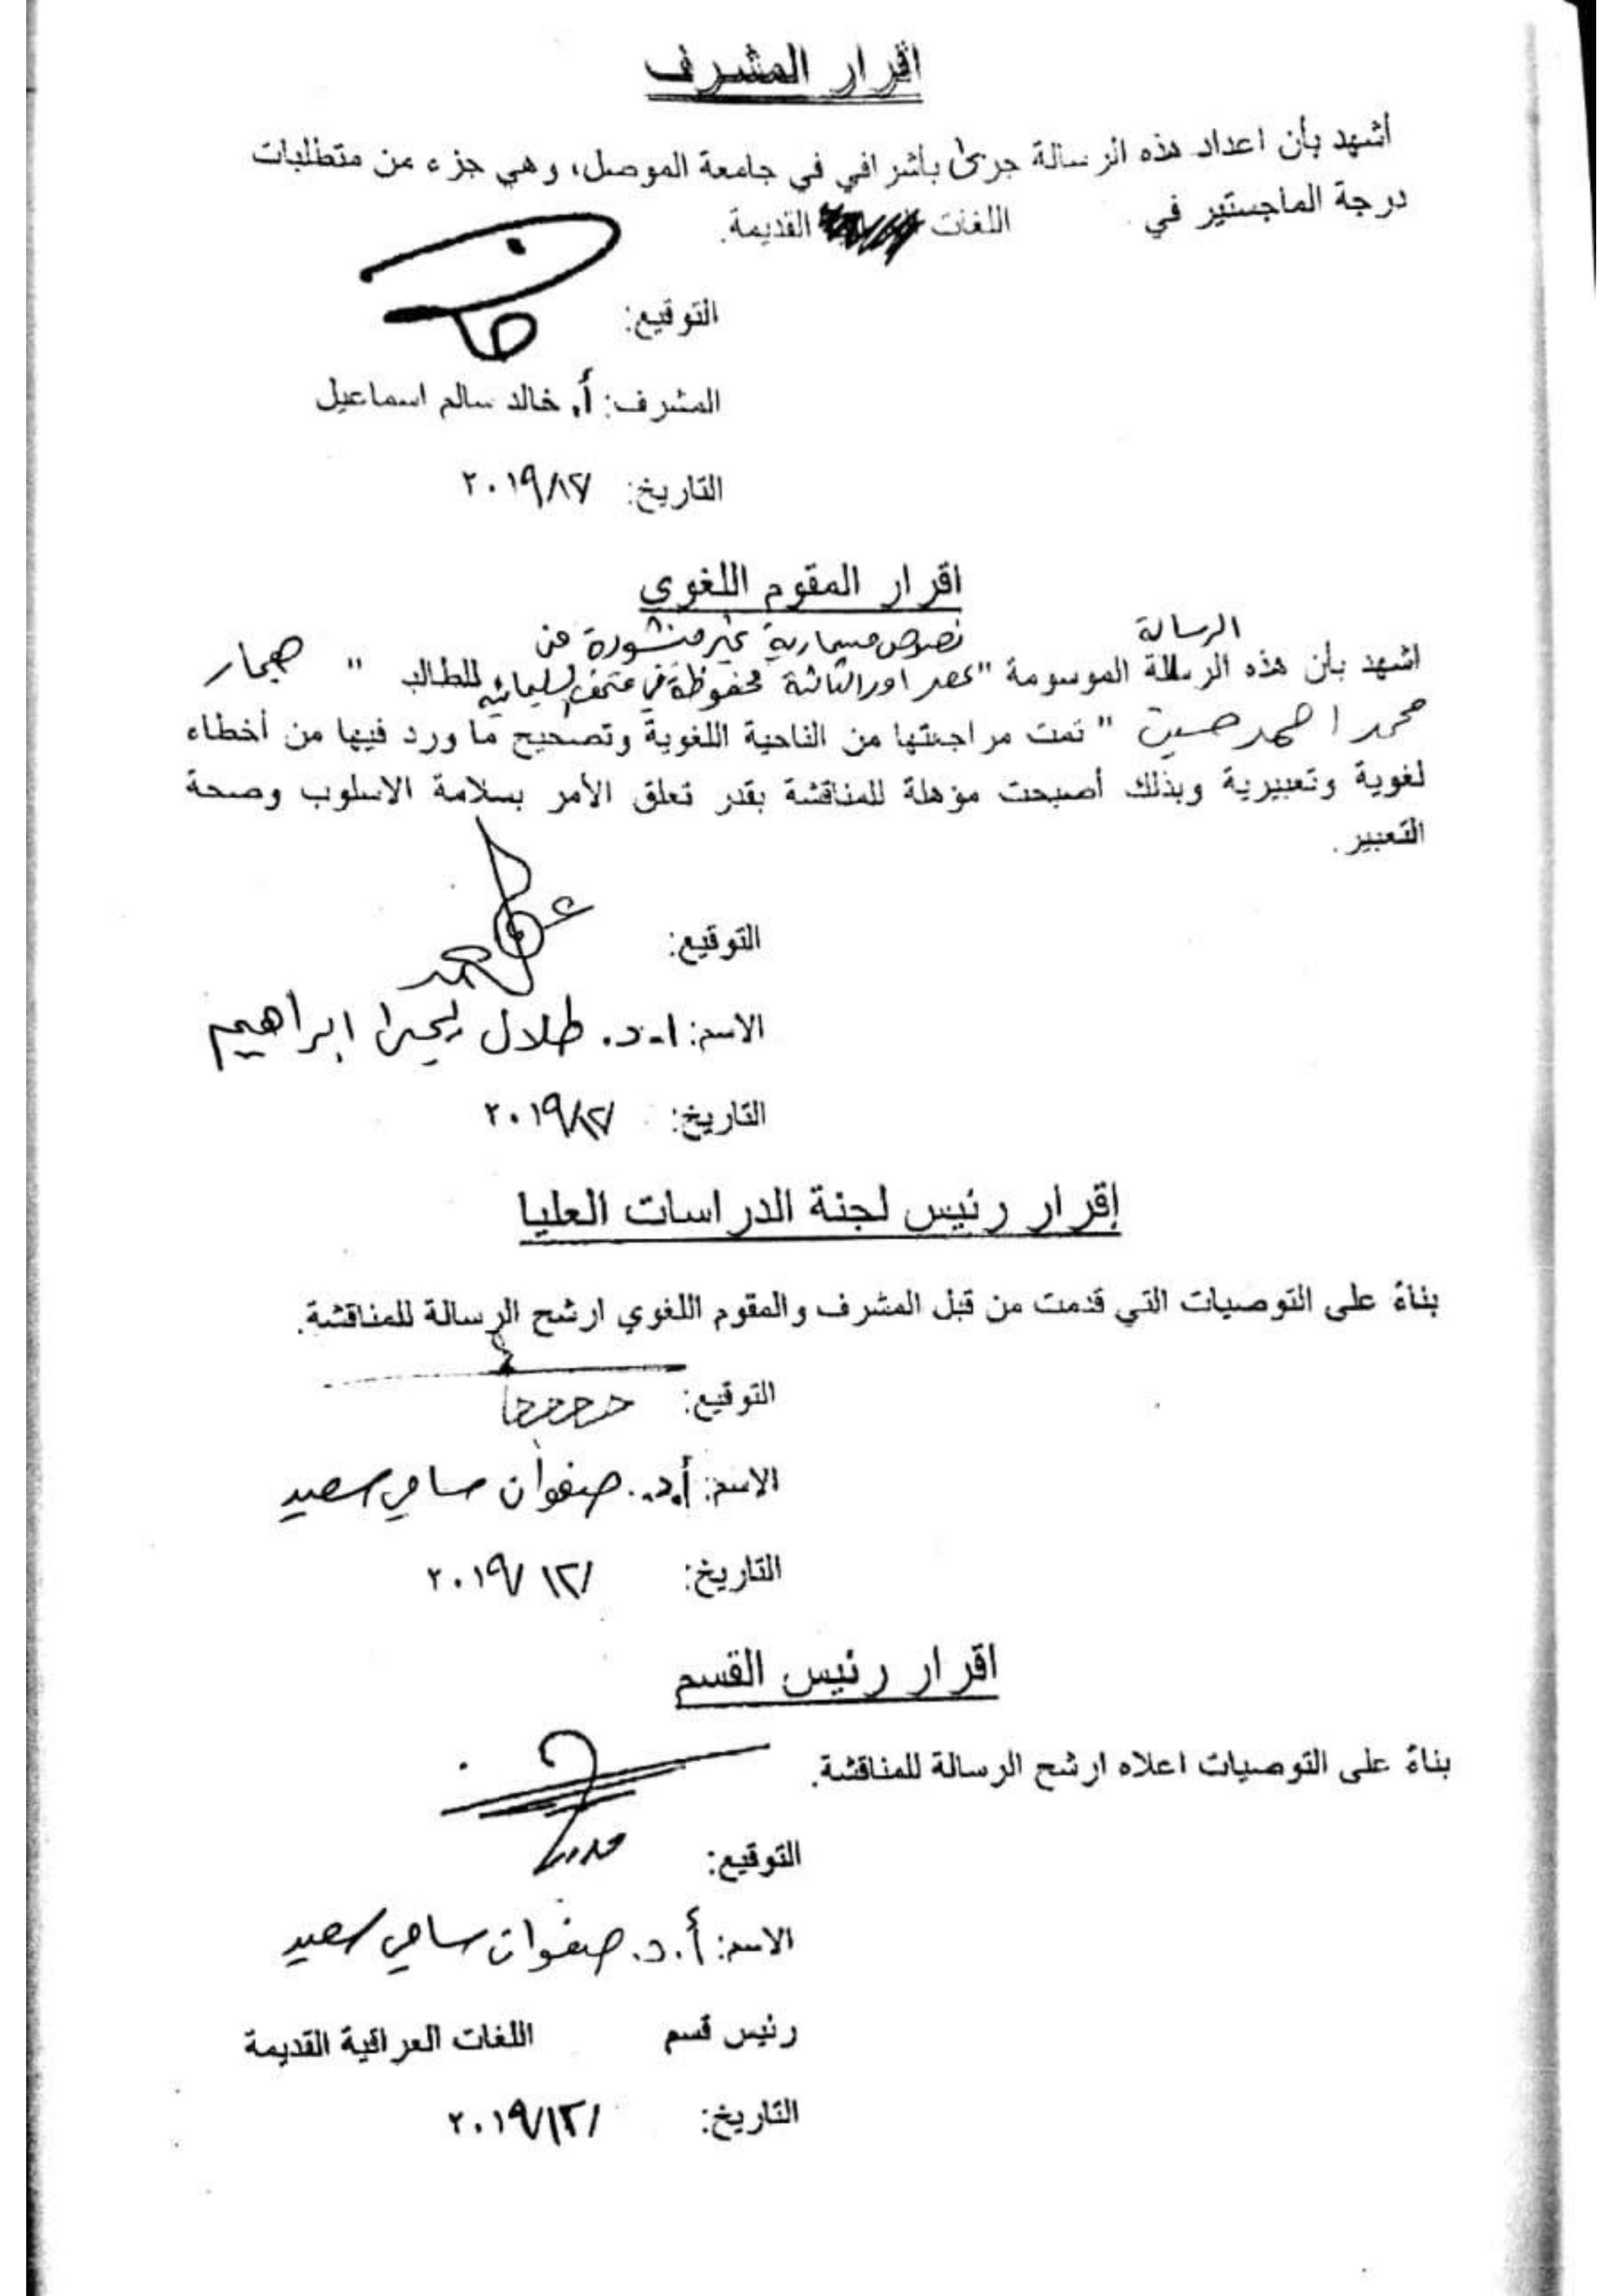 اقرار المشرف
أشهد بأن اعداد هذه الرسالة جرى بأشرافي في جامعة الموصل، وهي جزء من متطلبات
درجة الماجستير في اللغات القديمة.
التوقيع:
المشرف: أ. خالد سالم اسماعيل
التاريخ: ٢٠١٩/١٢/
اقرار المقوم اللغوي
الرسالة نصوص مسمارية غير منشورة من
اشهد بأن هذه الرسالة الموسومة "عصر اور الثالثة محفوظة في متحف السليمانية للطالب "
محمد احمد حسين " تمت مراجعتها من الناحية اللغوية وتصحيح ما ورد فيها من أخطاء
لغوية وتعبيرية وبذلك أصبحت مؤهلة للمناقشة بقدر تعلق الأمر بسلامة الاسلوب وصحة
التعبير.
التوقيع:
الاسم: ا.د. طلال يحيى ابراهيم
التاريخ: ٢٠١٩/١٢/
إقرار رئيس لجنة الدراسات العليا
بناءً على التوصيات التي قدمت من قبل المشرف والمقوم اللغوي ارشح الرسالة للمناقشة.
التوقيع:
الاسم: أ.د. صفوان سامي سعيد
التاريخ: ٢٠١٩/١٢/
اقرار رئيس القسم
بناءً على التوصيات اعلاه ارشح الرسالة للمناقشة.
التوقيع:
الاسم: أ.د. صفوان سامي سعيد
رئيس قسم اللغات العراقية القديمة
التاريخ: ٢٠١٩/١٢/